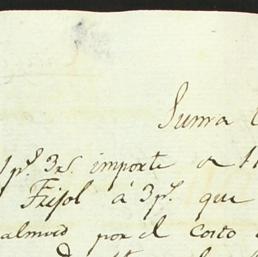 Suma
1 ps. 3 rs. importe a 11
Frisol á 3 ps. que
almud por el Costo